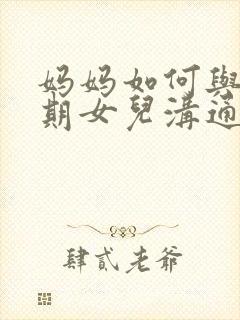 妈妈如何與
期女兒溝通
肆貳老爺